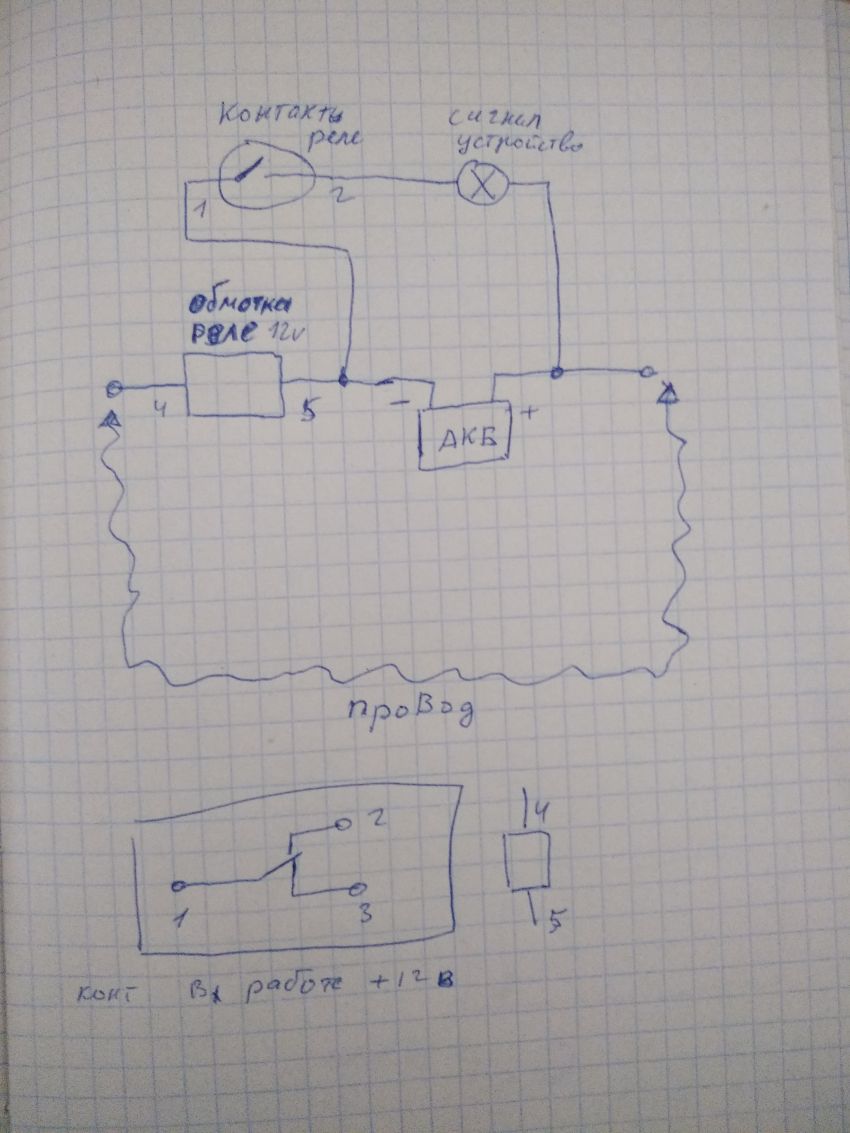 Контакты
реле
сигнал
устройство
1
2
обмотка
реле 12v
4
5
-
+
АКБ
провод
2
1
3
4
5
конт
работе +12в